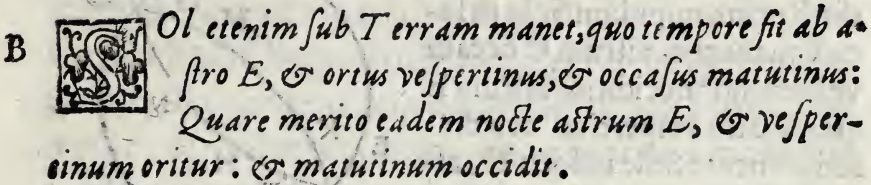 B SOl etenim ſub Terram manet, quo tempore fit ab a-
ſtro E, & ortus veſpertinus, & occaſus matutinus:
Quare merito eadem nocte aſtrum E, & veſper-
tinum oritur: & matutinum occidit.